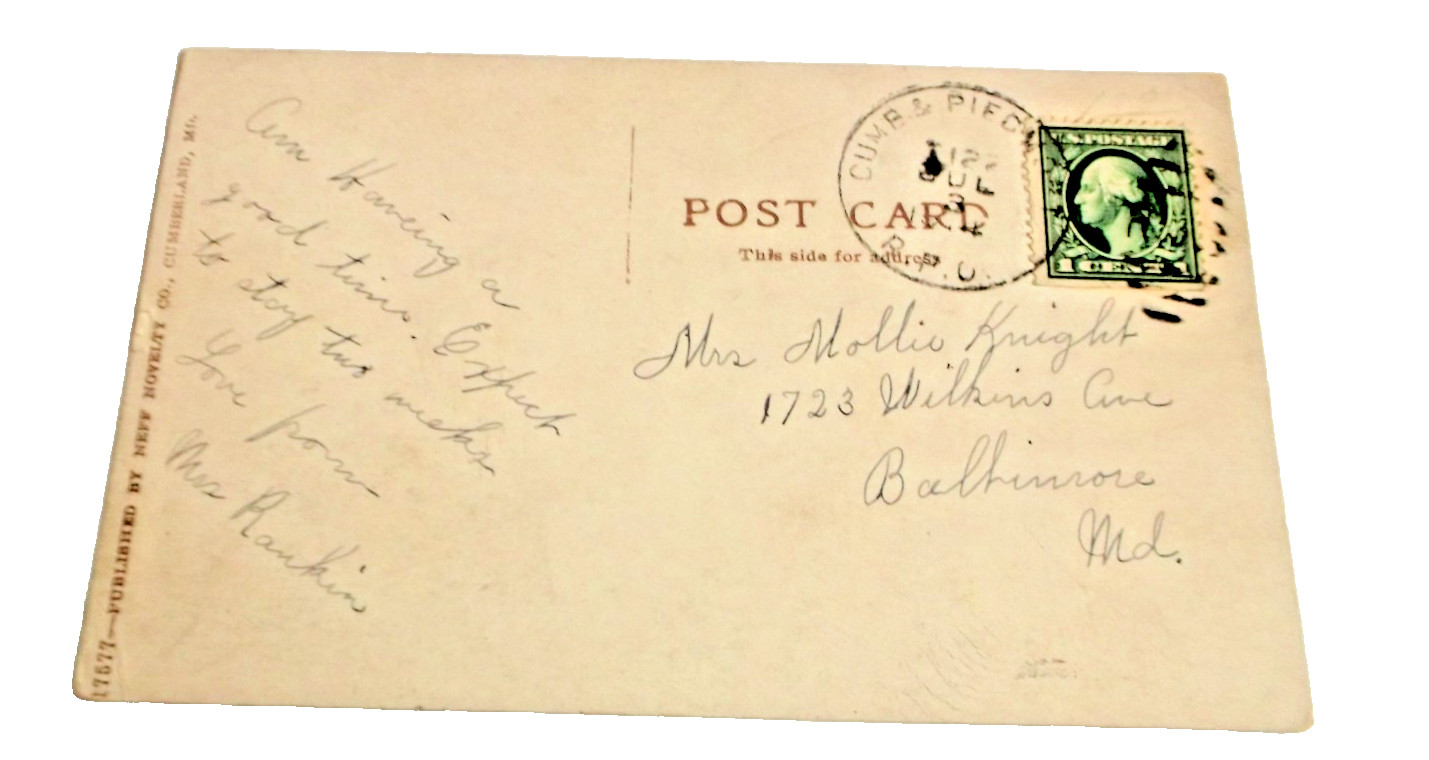 17577—PUBLISHED BY NEFF NOVELTY CO., CUMBERLAND, MD.
Am Haveing a
good time. Expect
to stay two weeks
Love from
Mrs Rankin
POST CARD
This side for address
CUMB. & PIED
JUL
3
R.P.O.
U.S. POSTAGE
1 CENT 1
Mrs Mollie Knight
1723 Wilkins Ave
Baltimore
Md.